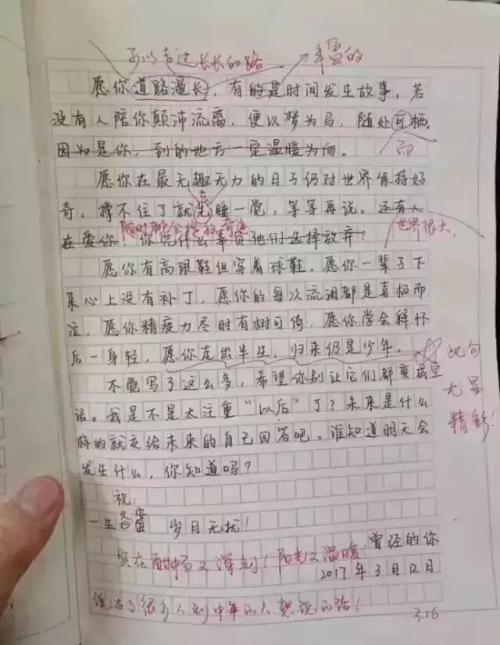 可以走过长长的路 丰富的
愿你道路漫长,有的是时间发生故事。若
没有人陪你颠沛流离,便以梦为马,随处可栖。
因为是你,到的地方一定温暖为向。 而
愿你在最无趣无力的日子仍对世界保持好
奇,撑不住了就先睡一觉,等等再说。还有人
随时都会 奇迹 世界很大
在爱你,你凭什么事替他们选择放弃?
愿你有高跟鞋但穿着球鞋,愿你一辈子下
来心上没有补丁,愿你的每次流泪都是喜极而
泣,愿你精疲力尽时有树可倚,愿你学会释怀
后一身轻,愿你走出半生,归来仍是少年。 此句
不觉写了这么多,希望你别让它们都变成空 尤显
话。我是不是太注重“以后”了?未来是什么 精彩!
样的就交给未来的自己回答吧,谁知道明天会
发生什么,你知道吗?
祝:
一生 岁月无忧!
实在 又深刻!阳光又温暖 曾经的你
2017年3月12日
很多人到中年的人想说的话! 3.16